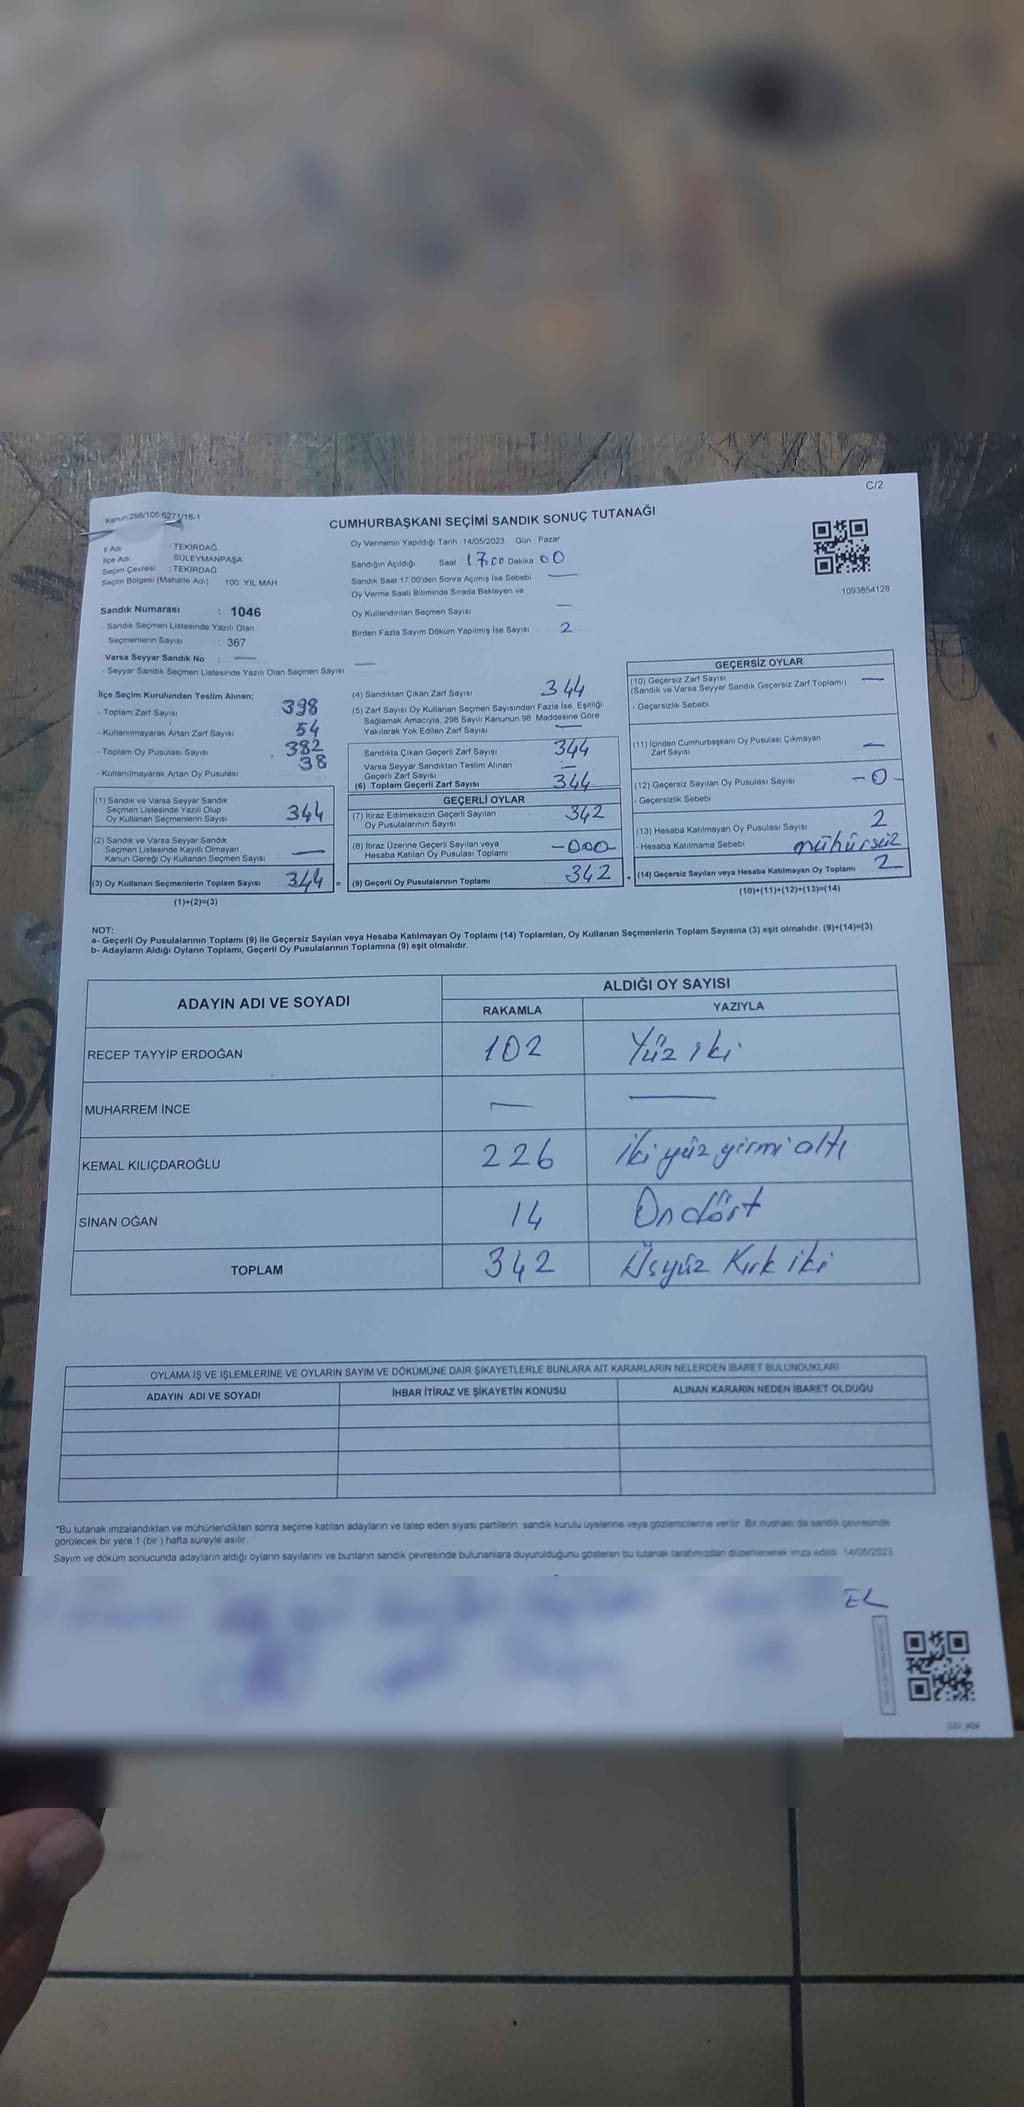 C/2
Kanun:298/105;6271/18-1
CUMHURBAŞKANI SEÇİMİ SANDIK SONUÇ TUTANAĞI
İl Adı TEKİRDAĞ
İlçe Adı SÜLEYMANPAŞA
Seçim Çevresi : TEKİRDAĞ
Seçim Bölgesi (Mahalle Adı) 100. YIL MAH
Sandık Numarası : 1046
- Sandık Seçmen Listesinde Yazılı Olan
Seçmenlerin Sayısı : 367
Varsa Seyyar Sandık No : —
- Seyyar Sandık Seçmen Listesinde Yazılı Olan Seçmen Sayısı —
Oy Vermenin Yapıldığı Tarih 14/05/2023 Gün Pazar
Sandığın Açıldığı Saat 17.00 Dakika 00
Sandık Saat 17.00'den Sonra Açımış İse Sebebi —
Oy Verme Saati Bitiminde Sırada Bekleyen ve
Oy Kullandırılan Seçmen Sayısı —
Birden Fazla Sayım Döküm Yapılmış İse Sayısı 2
1093854128
İlçe Seçim Kurulundan Teslim Alınan;
- Toplam Zarf Sayısı 398
- Kullanılmayarak Artan Zarf Sayısı 54
- Toplam Oy Pusulası Sayısı 382
- Kullanılmayarak Artan Oy Pusulası 38
(1) Sandık ve Varsa Seyyar Sandık
Seçmen Listesinde Yazılı Olup
Oy Kullanan Seçmenlerin Sayısı 344
(2) Sandık ve Varsa Seyyar Sandık
Seçmen Listesinde Kayıtlı Olmayan
Kanun Gereği Oy Kullanan Seçmen Sayısı —
(3) Oy Kullanan Seçmenlerin Toplam Sayısı 344 =
(1)+(2)=(3)
(4) Sandıktan Çıkan Zarf Sayısı 344
(5) Zarf Sayısı Oy Kullanan Seçmen Sayısından Fazla İse, Eşitliği
Sağlamak Amacıyla, 298 Sayılı Kanunun 98. Maddesine Göre
Yakılarak Yok Edilen Zarf Sayısı —
Sandıkta Çıkan Geçerli Zarf Sayısı 344
Varsa Seyyar Sandıktan Teslim Alınan
Geçerli Zarf Sayısı —
(6) Toplam Geçerli Zarf Sayısı 344
GEÇERLİ OYLAR
(7) İtiraz Edilmeksizin Geçerli Sayılan
Oy Pusulalarının Sayısı 342
(8) İtiraz Üzerine Geçerli Sayılan veya
Hesaba Katılan Oy Pusulası Toplamı -000-
(9) Geçerli Oy Pusulalarının Toplamı 342 +
GEÇERSİZ OYLAR
(10) Geçersiz Zarf Sayısı —
(Sandık ve Varsa Seyyar Sandık Geçersiz Zarf Toplamı)
- Geçersizlik Sebebi
(11) İçinden Cumhurbaşkanı Oy Pusulası Çıkmayan
Zarf Sayısı —
(12) Geçersiz Sayılan Oy Pusulası Sayısı -0-
- Geçersizlik Sebebi
(13) Hesaba Katılmayan Oy Pusulası Sayısı 2
- Hesaba Katılmama Sebebi mühürsüz
(14) Geçersiz Sayılan veya Hesaba Katılmayan Oy Toplamı 2
(10)+(11)+(12)+(13)=(14)
NOT:
a- Geçerli Oy Pusulalarının Toplamı (9) ile Geçersiz Sayılan veya Hesaba Katılmayan Oy Toplamı (14) Toplamları, Oy Kullanan Seçmenlerin Toplam Sayısına (3) eşit olmalıdır. (9)+(14)=(3)
b- Adayların Aldığı Oyların Toplamı, Geçerli Oy Pusulalarının Toplamına (9) eşit olmalıdır.
ADAYIN ADI VE SOYADI ALDIĞI OY SAYISI
RAKAMLA YAZIYLA
RECEP TAYYİP ERDOĞAN 102 Yüz iki
MUHARREM İNCE — —
KEMAL KILIÇDAROĞLU 226 İki yüz yirmi altı
SİNAN OĞAN 14 On dört
TOPLAM 342 Üsyüz Kırk iki
OYLAMA İŞ VE İŞLEMLERİNE VE OYLARIN SAYIM VE DÖKÜMÜNE DAİR ŞİKAYETLERLE BUNLARA AİT KARARLARIN NELERDEN İBARET BULUNDUKLARI
ADAYIN ADI VE SOYADI İHBAR İTİRAZ VE ŞİKAYETİN KONUSU ALINAN KARARIN NEDEN İBARET OLDUĞU
*Bu tutanak imzalandıktan ve mühürlendikten sonra seçime katılan adayların ve talep eden siyasi partilerin sandık kurulu üyelerine veya gözlemcilerine verilir. Bir nüshası da sandık çevresinde
görülecek bir yere 1 (bir ) hafta süreyle asılır.
Sayım ve döküm sonucunda adayların aldığı oyların sayılarını ve bunların sandık çevresinde bulunanlara duyurulduğunu gösteren bu tutanak tarafımızdan düzenlenerek imza edildi. 14/05/2023
EL